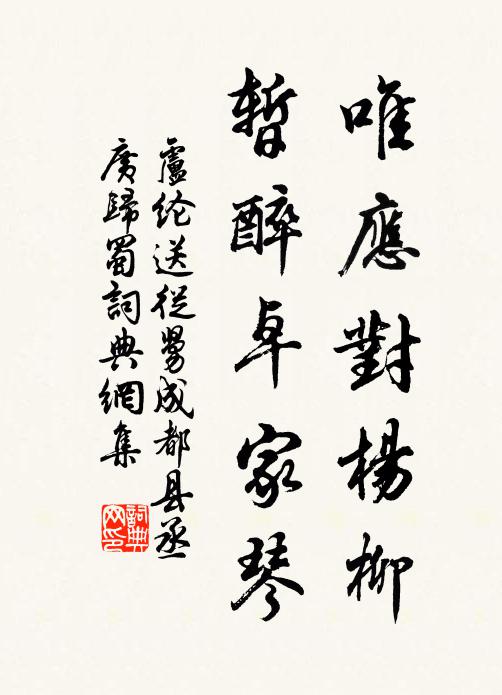 唯應對楊柳
暫醉卓家琴
盧纶送從舅成都县丞
廣歸蜀詞典網集
詞典
网印